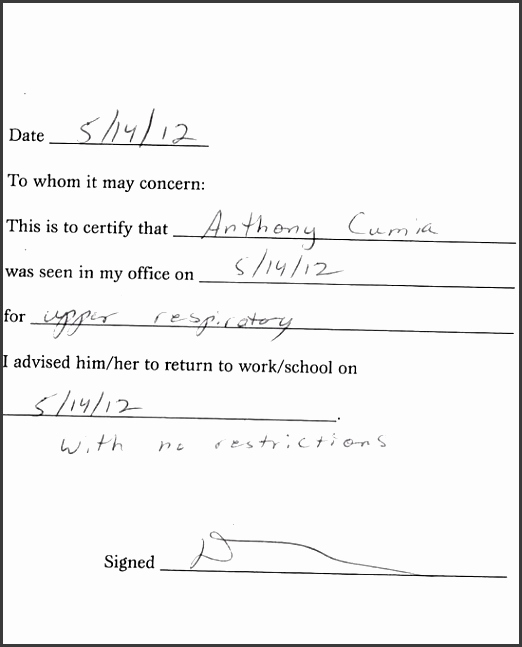 Date 5/14/12
To whom it may concern:
This is to certify that Anthony Cumia
was seen in my office on 5/14/12
for upper respiratory
I advised him/her to return to work/school on
5/14/12.
With no restrictions
Signed